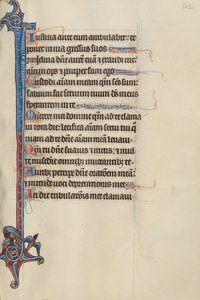 Iusticia ante eum ambulabit: et
ponet in uia gressus suos
Inclina dñe aurē tuā & exaudi me:
qm inops & pauper sum ego
Custodi aīam meam qm sc̄s sum:
saluum fac seruum tuum ds̄ meus
sperantem in te
Miserere mei domine qm ad te clama
ui tota die: letifica aīam serui tui q̄
niam ad te dñe aīam meā leuaui
Qm tu dñe suauis & mitis: & mul
te misericordie omnibȝ inuocantibȝ te
Auribȝ percipe dñe orationem meā:
& intende uoci deprecationis mee
In die tribulationis mee clamaui